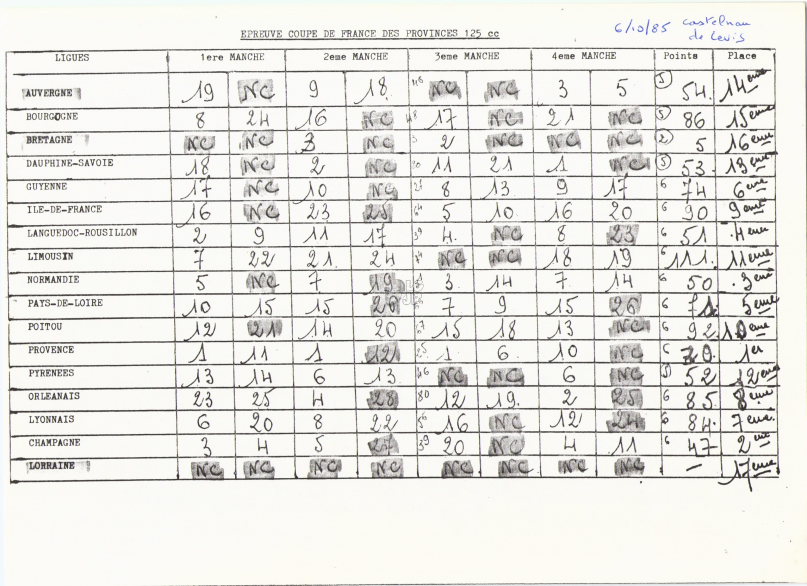 6/10/85 Castelnau
de Levis
EPREUVE COUPE DE FRANCE DES PROVINCES 125 cc
LIGUES 1ere MANCHE 2eme MANCHE 3eme MANCHE 4eme MANCHE Points Place
AUVERGNE 19 NC 9 18 NC NC 3 5 5 54. 14eme
BOURGOGNE 8 24 16 NC 17 NC 21 NC 5 86 15eme
BRETAGNE NC NC 3 NC 2 NC NC NC 2 5 16eme
DAUPHINE-SAVOIE 18 NC 2 NC 11 21 1 NC 5 53 13eme
GUYENNE 17 NC 10 NC 8 13 9 17 6 74 6eme
ILE-DE-FRANCE 16 NC 23 25 5 10 16 20 6 90 9eme
LANGUEDOC-ROUSILLON 2 9 11 17 39 4. NC 8 23 6 51 4eme
LIMOUSIN 7 22 21. 24 NC NC 18 19 6 111. 11eme
NORMANDIE 5 NC 7 19 3. 14 7 14 6 50 3eme
PAYS-DE-LOIRE 10 15 15 26 7 9 15 26 6 71. 5eme
POITOU 12 21 14 20 15 18 13 NC 6 92. 10eme
PROVENCE 1 11 1 12 25 1 6. 10 NC 6 1er
PYRENEES 13 14 6 13 46 NC NC 6 NC 5 52 12eme
ORLEANAIS 23 25 4 28 80 12 19. 2 25 6 85 8eme
LYONNAIS 6 20 8 22 56 16 NC 12 24 6 84. 7eme
CHAMPAGNE 3 4 5 27 39 20 NC 4 11 6 47 2eme
LORRAINE NC NC NC NC NC NC NC NC — 17eme